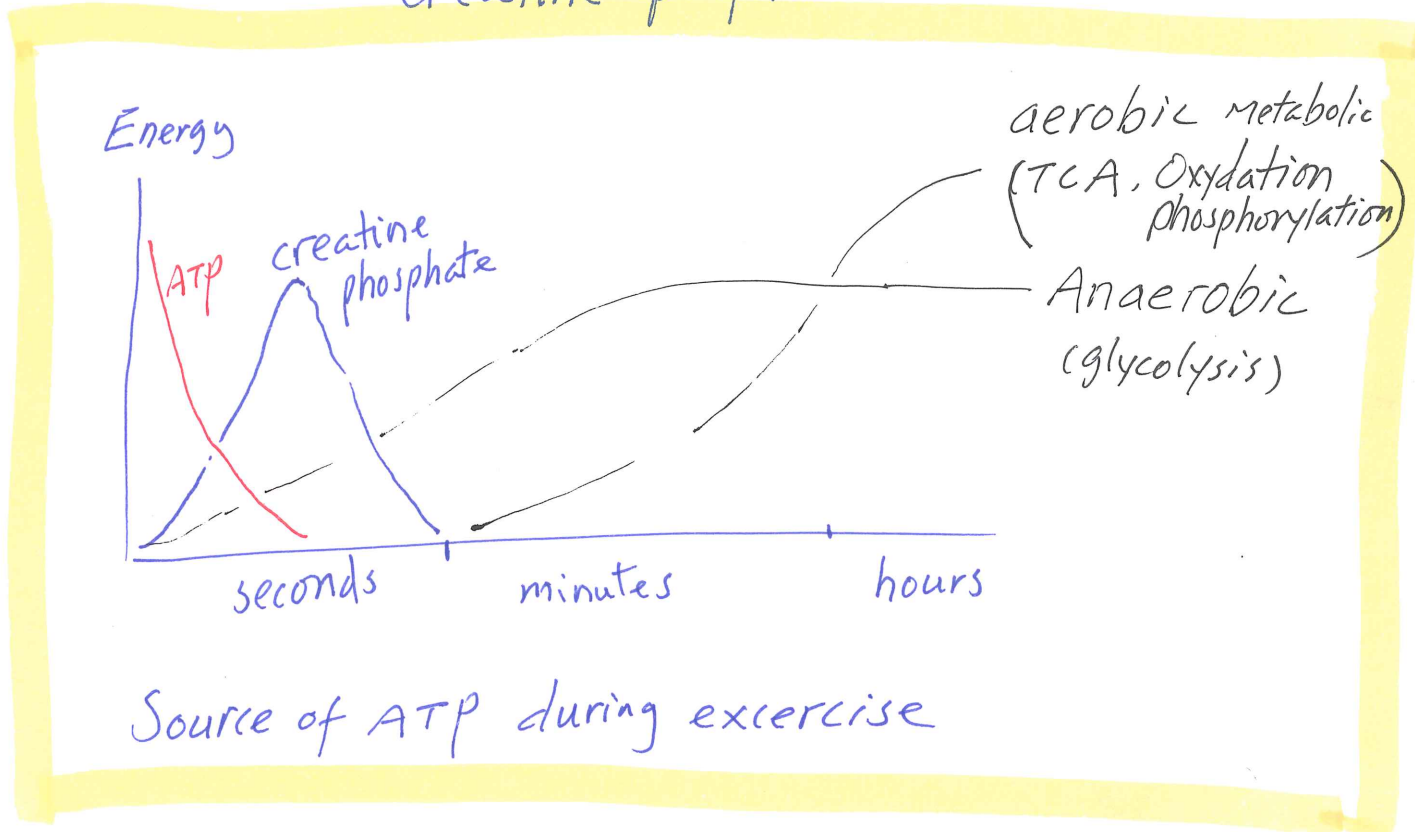 creatine
Energy
ATP
creatine
phosphate
aerobic Metabolic
(TCA, Oxydation
phosphorylation)
Anaerobic
(glycolysis)
seconds
minutes
hours
Source of ATP during excercise